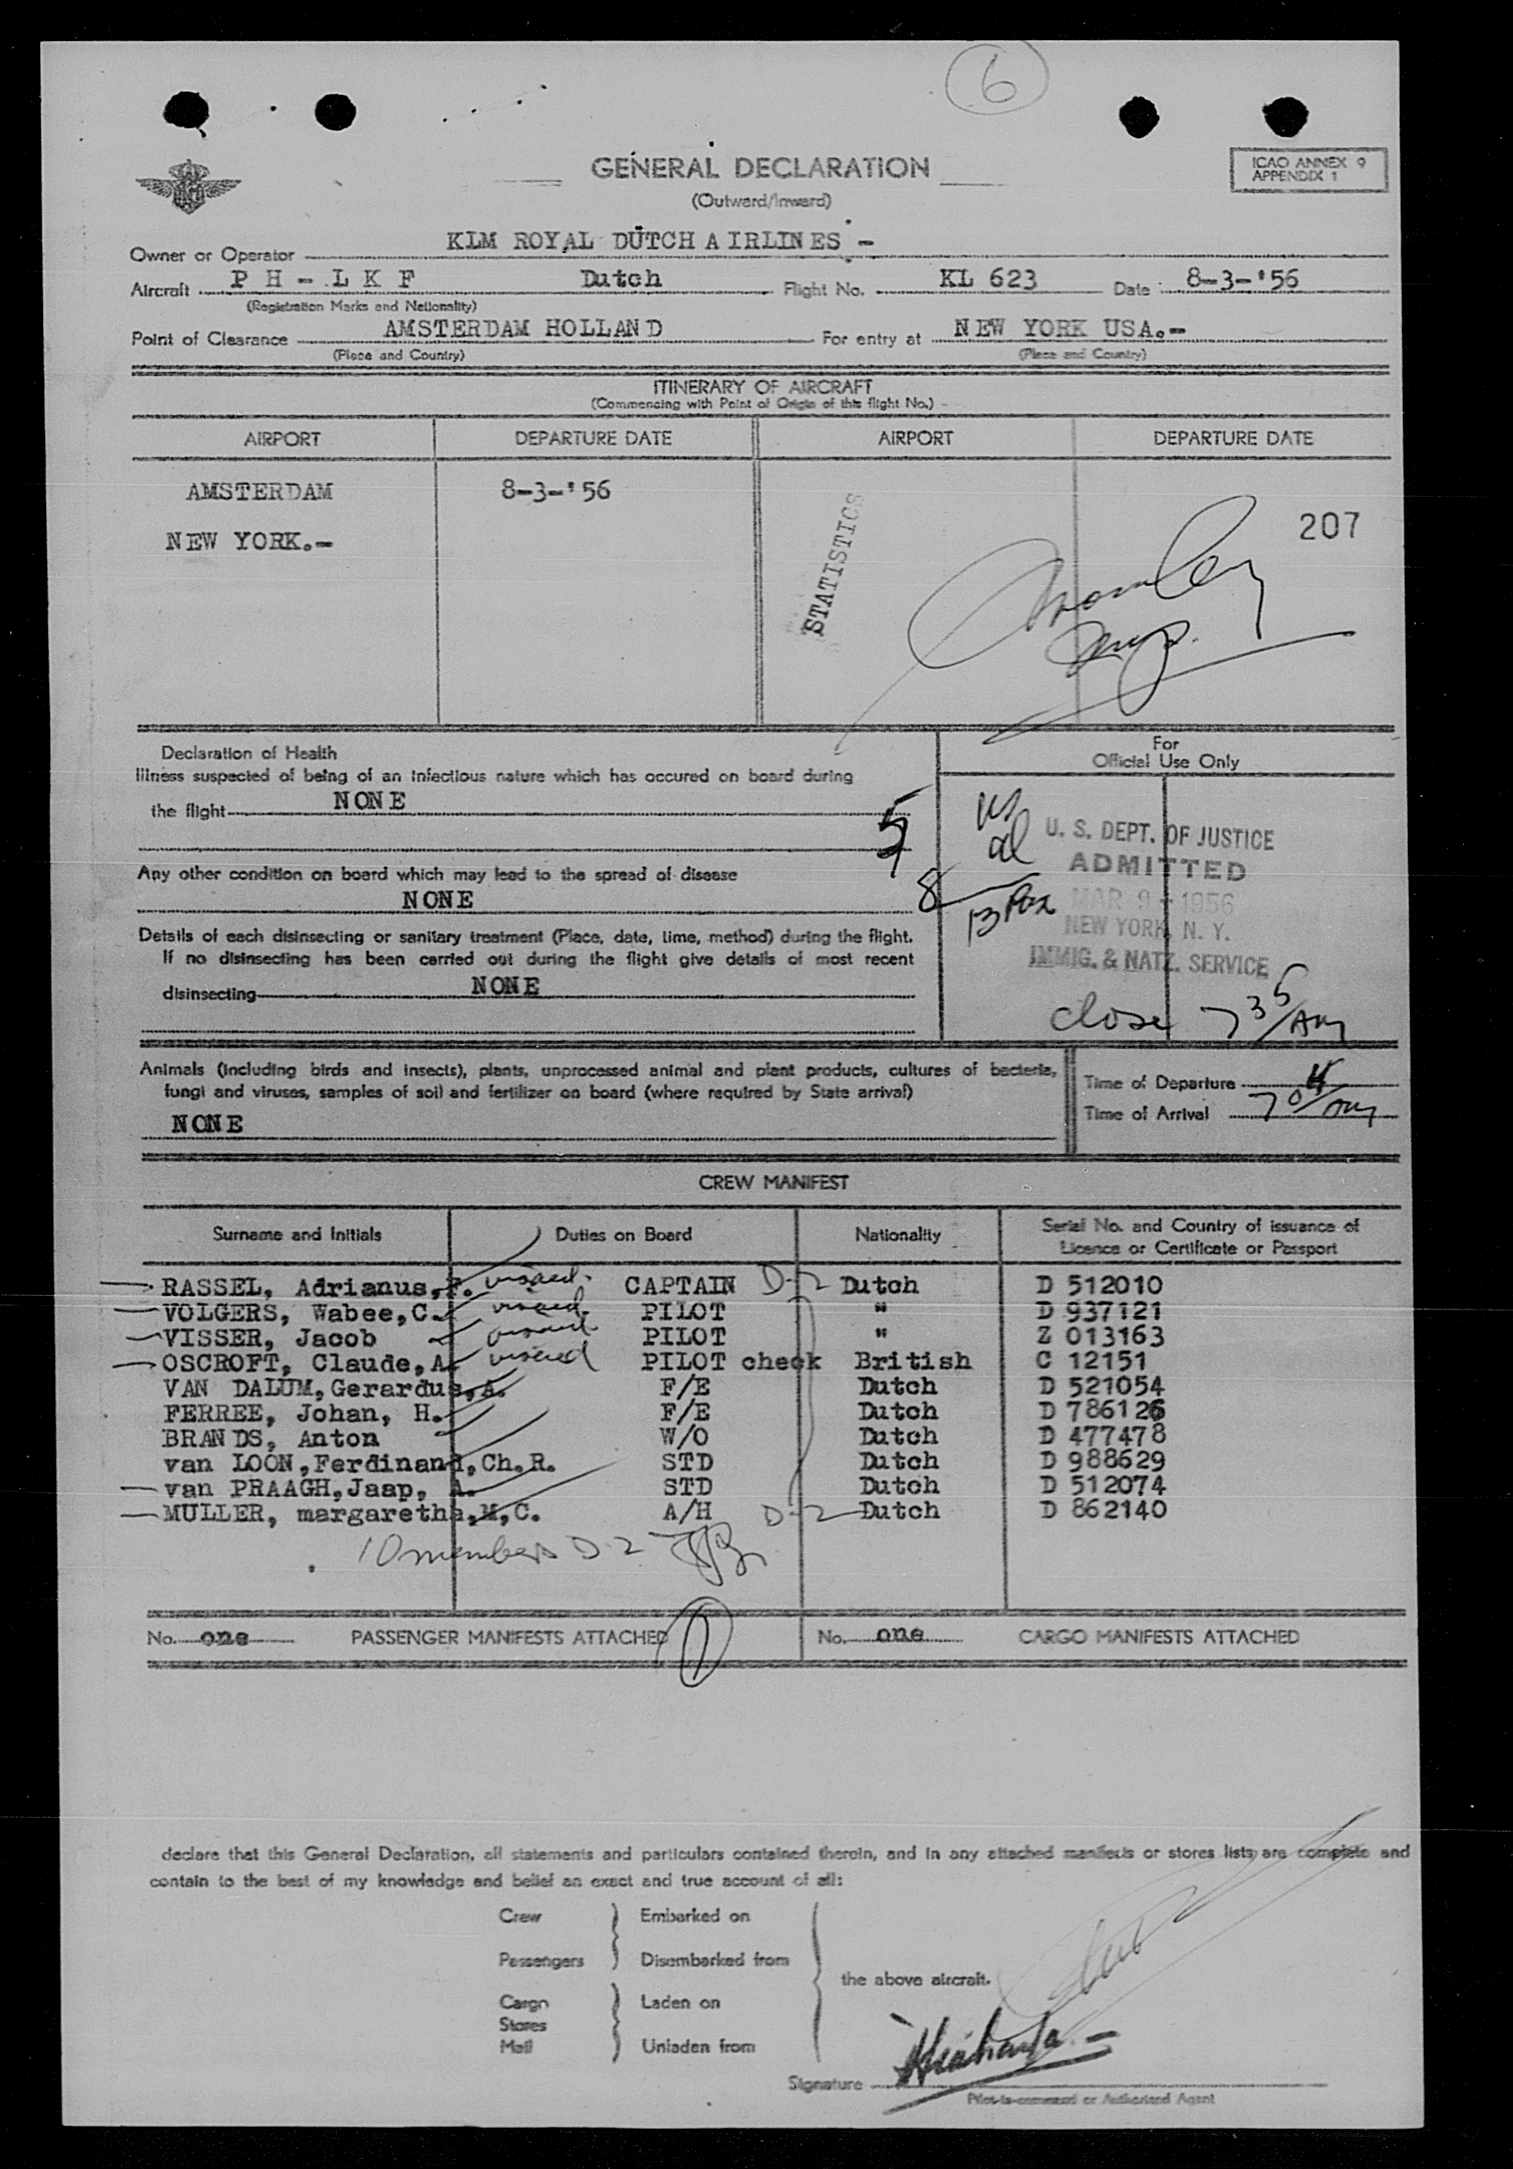 6
GENERAL DECLARATION
(Outward/Inward)
ICAO ANNEX 9
APPENDIX 1
Owner or Operator KLM ROYAL DUTCH AIRLINES -
Aircraft P H - L K F Dutch Flight No. KL 623 Date 8-3-'56
(Registration Marks and Nationality)
Point of Clearance AMSTERDAM HOLLAND For entry at NEW YORK USA.-
(Place and Country) (Place and Country)
ITINERARY OF AIRCRAFT
(Commencing with Point of Origin of this flight No.)
AIRPORT DEPARTURE DATE AIRPORT DEPARTURE DATE
AMSTERDAM 8-3-'56
NEW YORK.-
STATISTICS
207
Declaration of Health
Illness suspected of being of an infectious nature which has occured on board during
the flight NONE
Any other condition on board which may lead to the spread of disease
NONE
Details of each disinsecting or sanitary treatment (Place, date, time, method) during the flight.
If no disinsecting has been carried out during the flight give details of most recent
disinsecting NONE
For
Official Use Only
5 US
8 al
13 Pax
U. S. DEPT. OF JUSTICE
ADMITTED
MAR 9 - 1956
NEW YORK, N. Y.
IMMIG. & NATZ. SERVICE
close 7 35/AM
Animals (including birds and insects), plants, unprocessed animal and plant products, cultures of bacteria,
fungi and viruses, samples of soil and fertilizer on board (where required by State arrival)
NONE
Time of Departure
Time of Arrival 7 04/AM
CREW MANIFEST
Surname and Initials Duties on Board Nationality Serial No. and Country of issuance of
Licence or Certificate or Passport
RASSEL, Adrianus,P. visaed. CAPTAIN D-2 Dutch D 512010
VOLGERS, Wabee,C. visaed. PILOT " D 937121
VISSER, Jacob visaed. PILOT " Z 013163
OSCROFT, Claude,A. visaed PILOT check British C 12151
VAN DALUM,Gerardus,A. F/E Dutch D 521054
FERREE, Johan, H. F/E Dutch D 786126
BRANDS, Anton W/O Dutch D 477478
van LOON,Ferdinand,Ch.R. STD Dutch D 988629
van PRAAGH,Jaap, A. STD Dutch D 512074
MULLER, margaretha,M,C. A/H D-2 Dutch D 862140
10 members D-2
No. one PASSENGER MANIFESTS ATTACHED 1 No. one CARGO MANIFESTS ATTACHED
declare that this General Declaration, all statements and particulars contained therein, and in any attached manifests or stores lists are complete and
contain to the best of my knowledge and belief an exact and true account of all:
Crew Embarked on
Passengers Disembarked from
the above aircraft.
Cargo Laden on
Stores
Mail Unladen from
Signature
Pilot-in-command or Authorized Agent